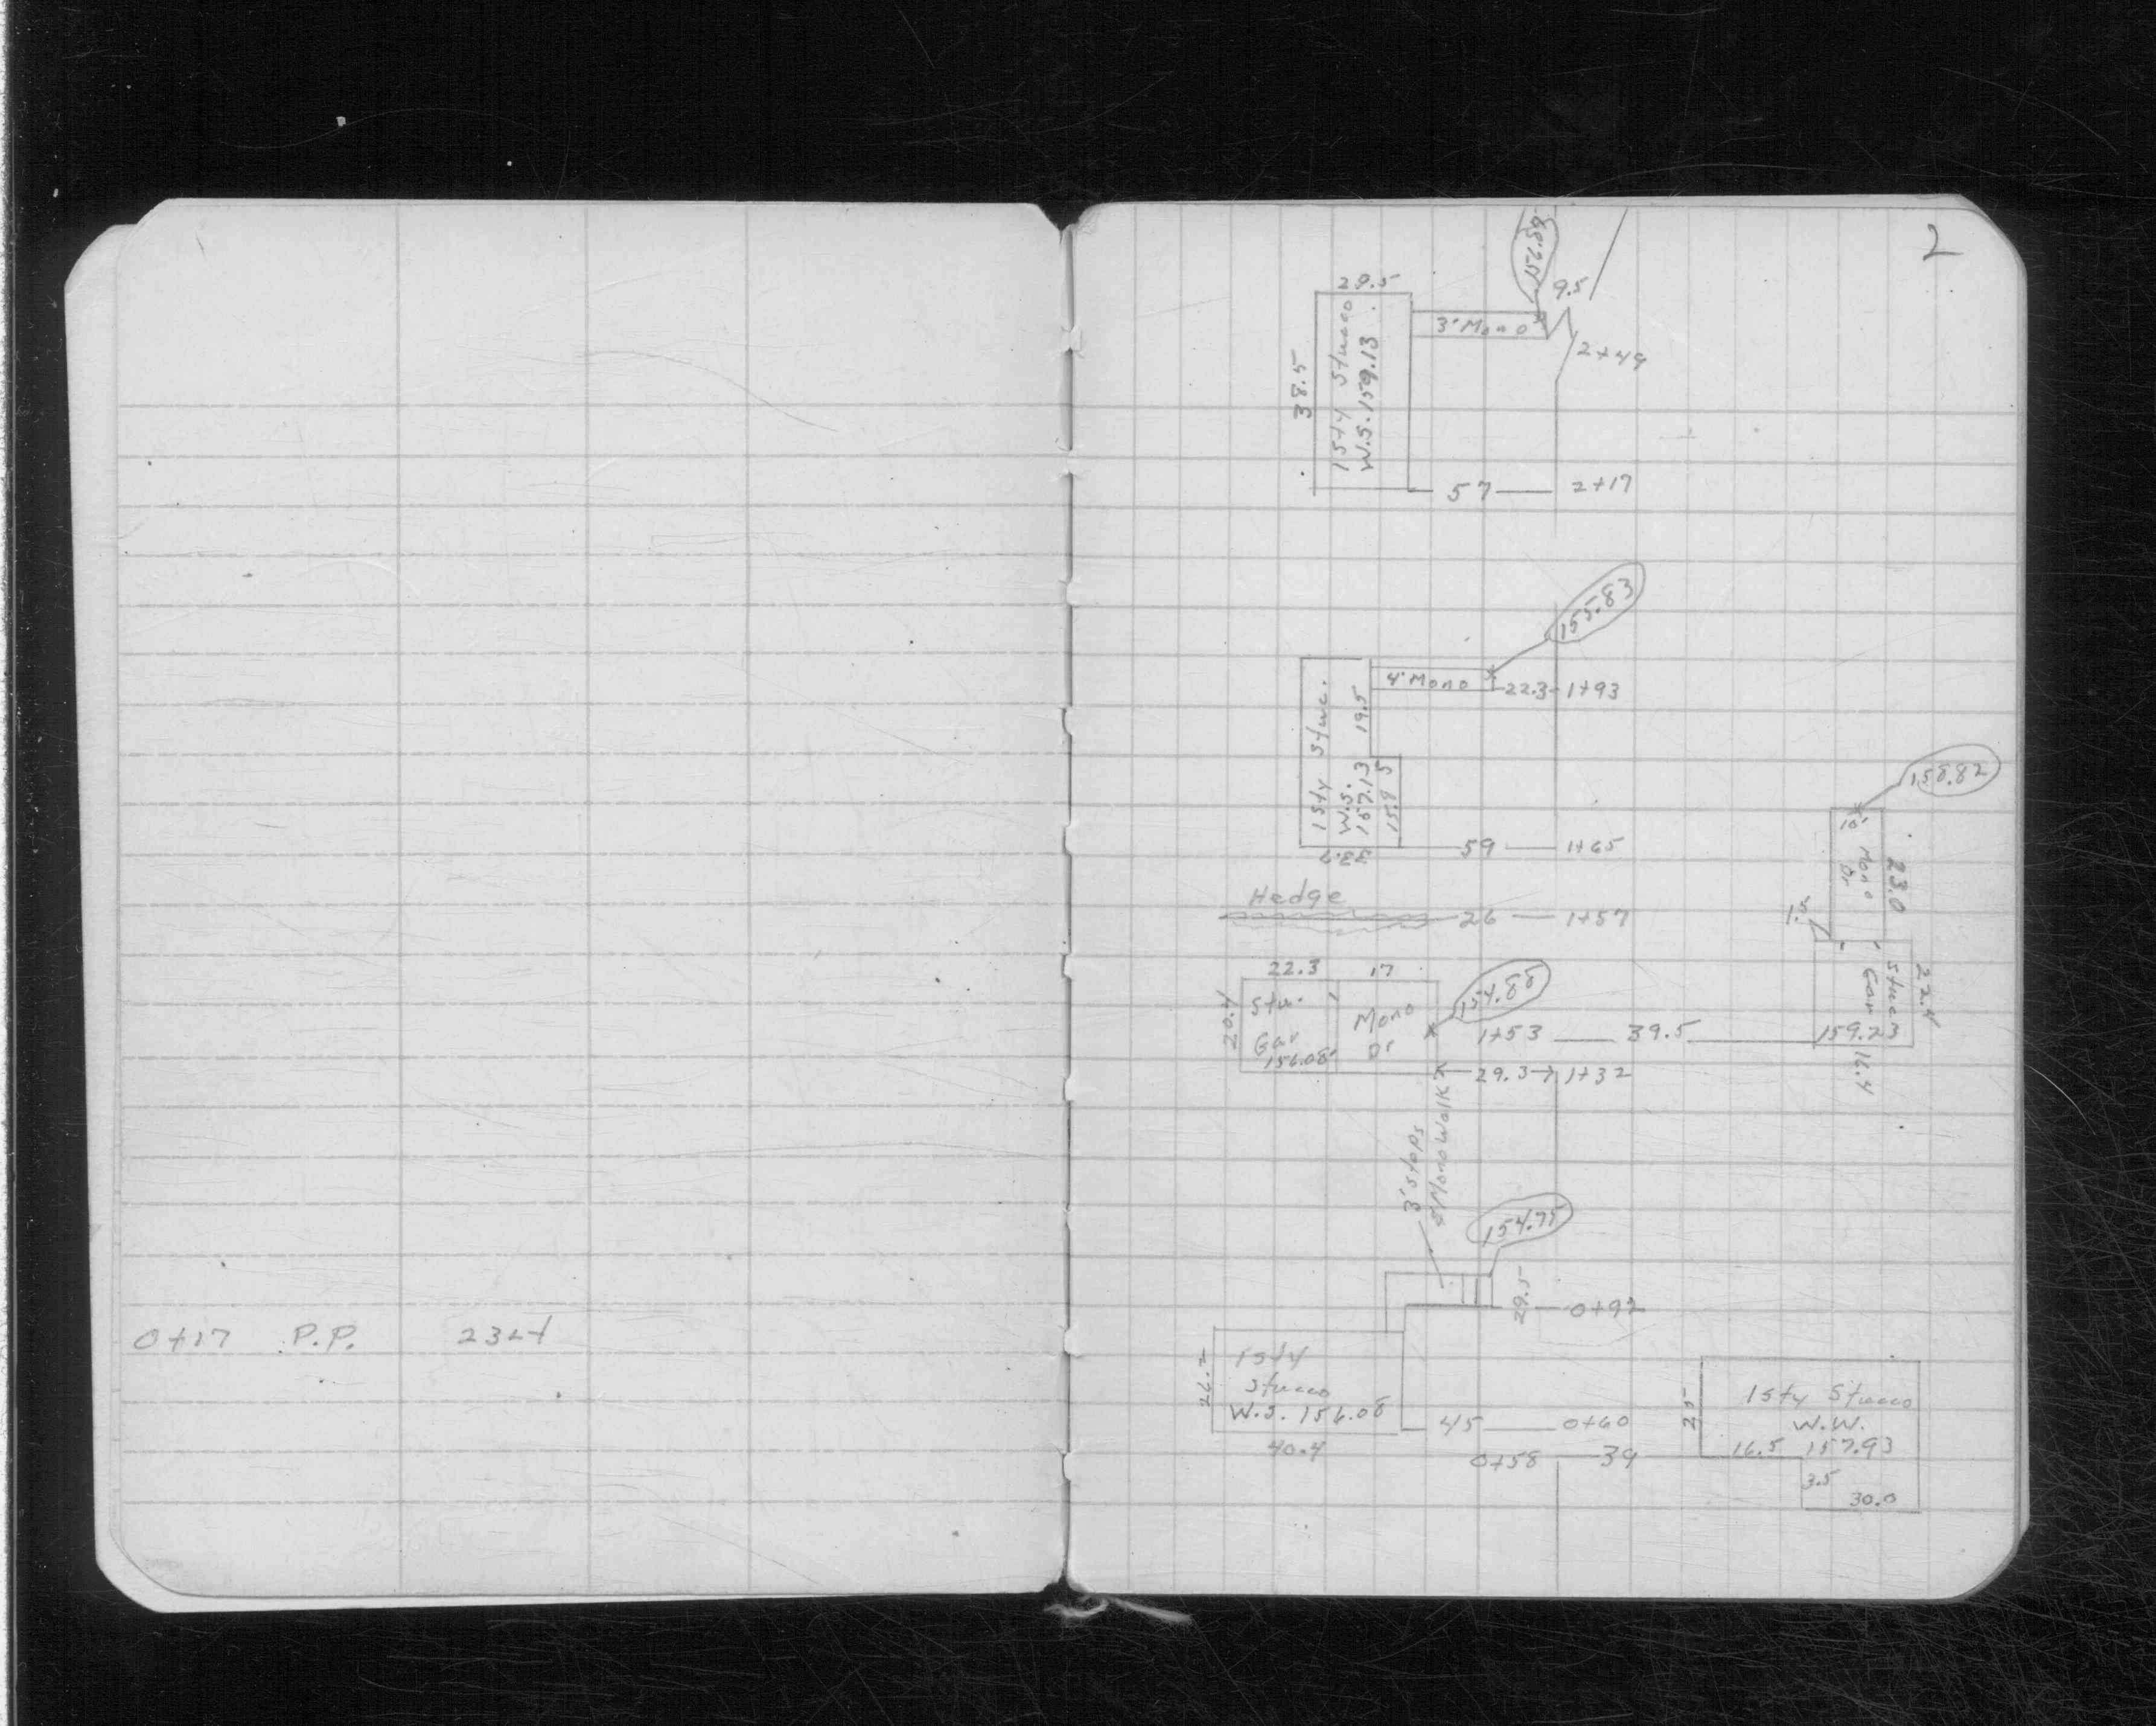 2
156.89
29.5
9.5
3' Mono
2+49
38.5
1 Sty Stucco
W.S. 159.13
57 2+17
155.83
4' Mono 22.3 1+93
1 Sty Stuc.
19.5
W.S.
157.13
15.9
59 1+65
158.82
10'
Mono
Dr
23.0
1.5
Hedge
26 1+57
22.3 17
154.88
20.4
Stu.
Gar
156.08
Mono
Dr
1+53 39.5
Stuc
Gar
22.4
159.23
16.4
29.3 1+32
3' Steps
Mono Walk
154.75
29.5 0+92
0+17 P.P. 23 Lt
1 Sty
Stucco
W.S. 156.08
40.4
45 0+60
0+58 39
25
1 Sty Stucco
W.W.
16.5 157.93
3.5
30.0